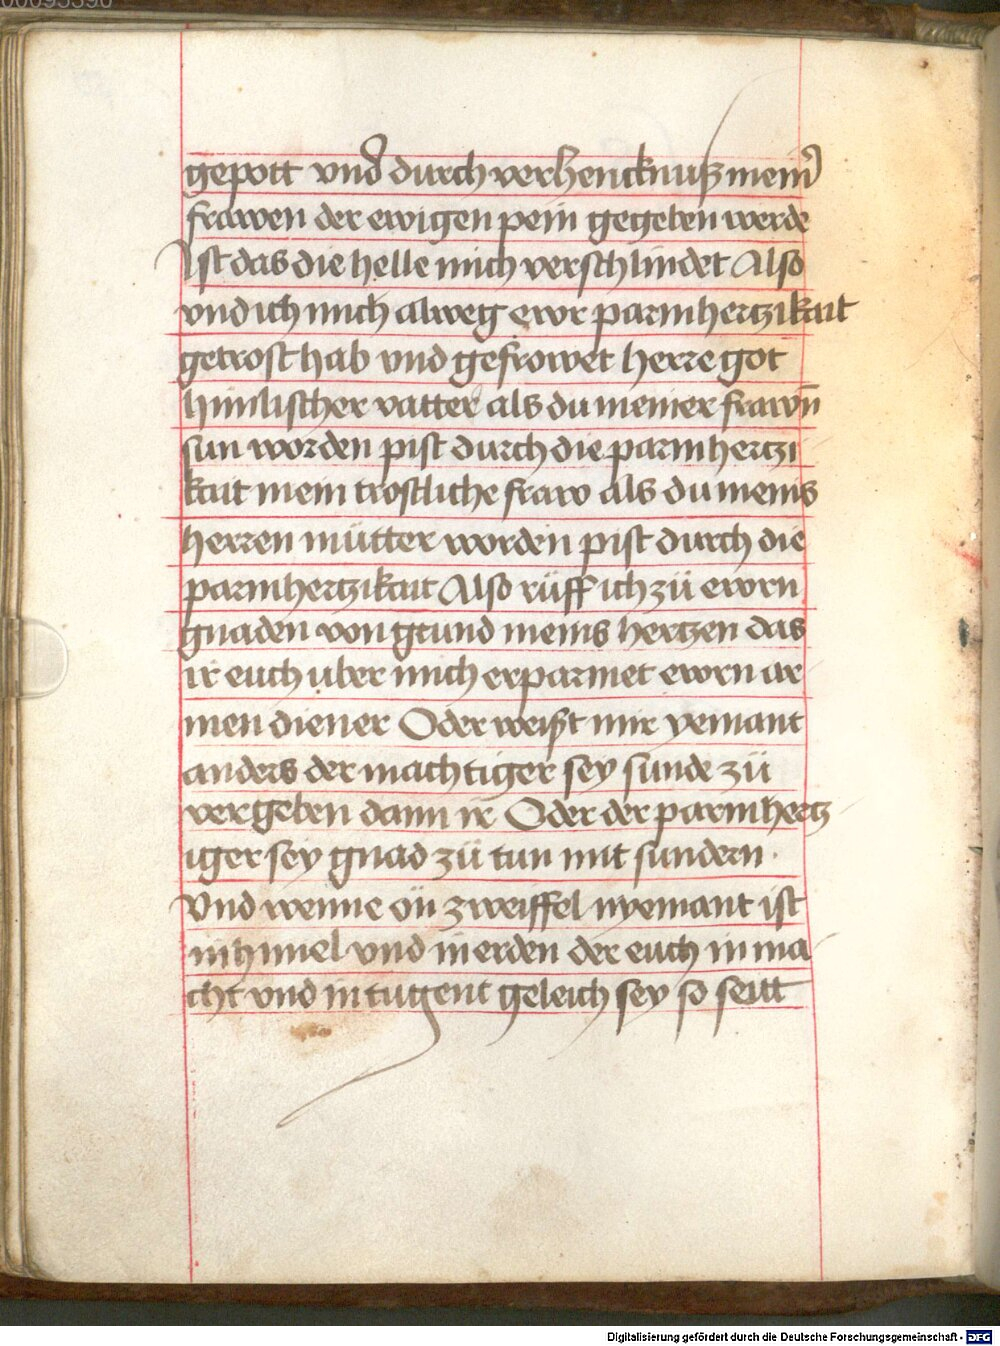 gepott vnd durch verhencknuß mein̄
frawen der ewigen pein gegeben werde
Ist das die helle mich verschlindet Also
vnd ich mich alweg ewr parmhertzikait
getrost hab vnd gefrowet herre got
himlischer vatter als du meiner frawn̄
sun worden pist durch die parmhertzi
kait mein trostliche fraw als du meins
herren mütter worden pist durch die
parmhertzikait Also rüff ich zü ewrn
gnaden von grund meins hertzen das
ir euch uber mich erparmet ewrn ar
men diener Oder weißt mir yemant
anders der machtiger sey sunde zü
vergeben dann ir Oder der parmhertz
iger sey gnad zü tun mit sundern ·
Vnd wenne on zweiffel nyemant ist
in himel vnd in erden der euch in ma
cht vnd in tugent geleich sey so seitt
Digitalisierung gefördert durch die Deutsche Forschungsgemeinschaft - DFG